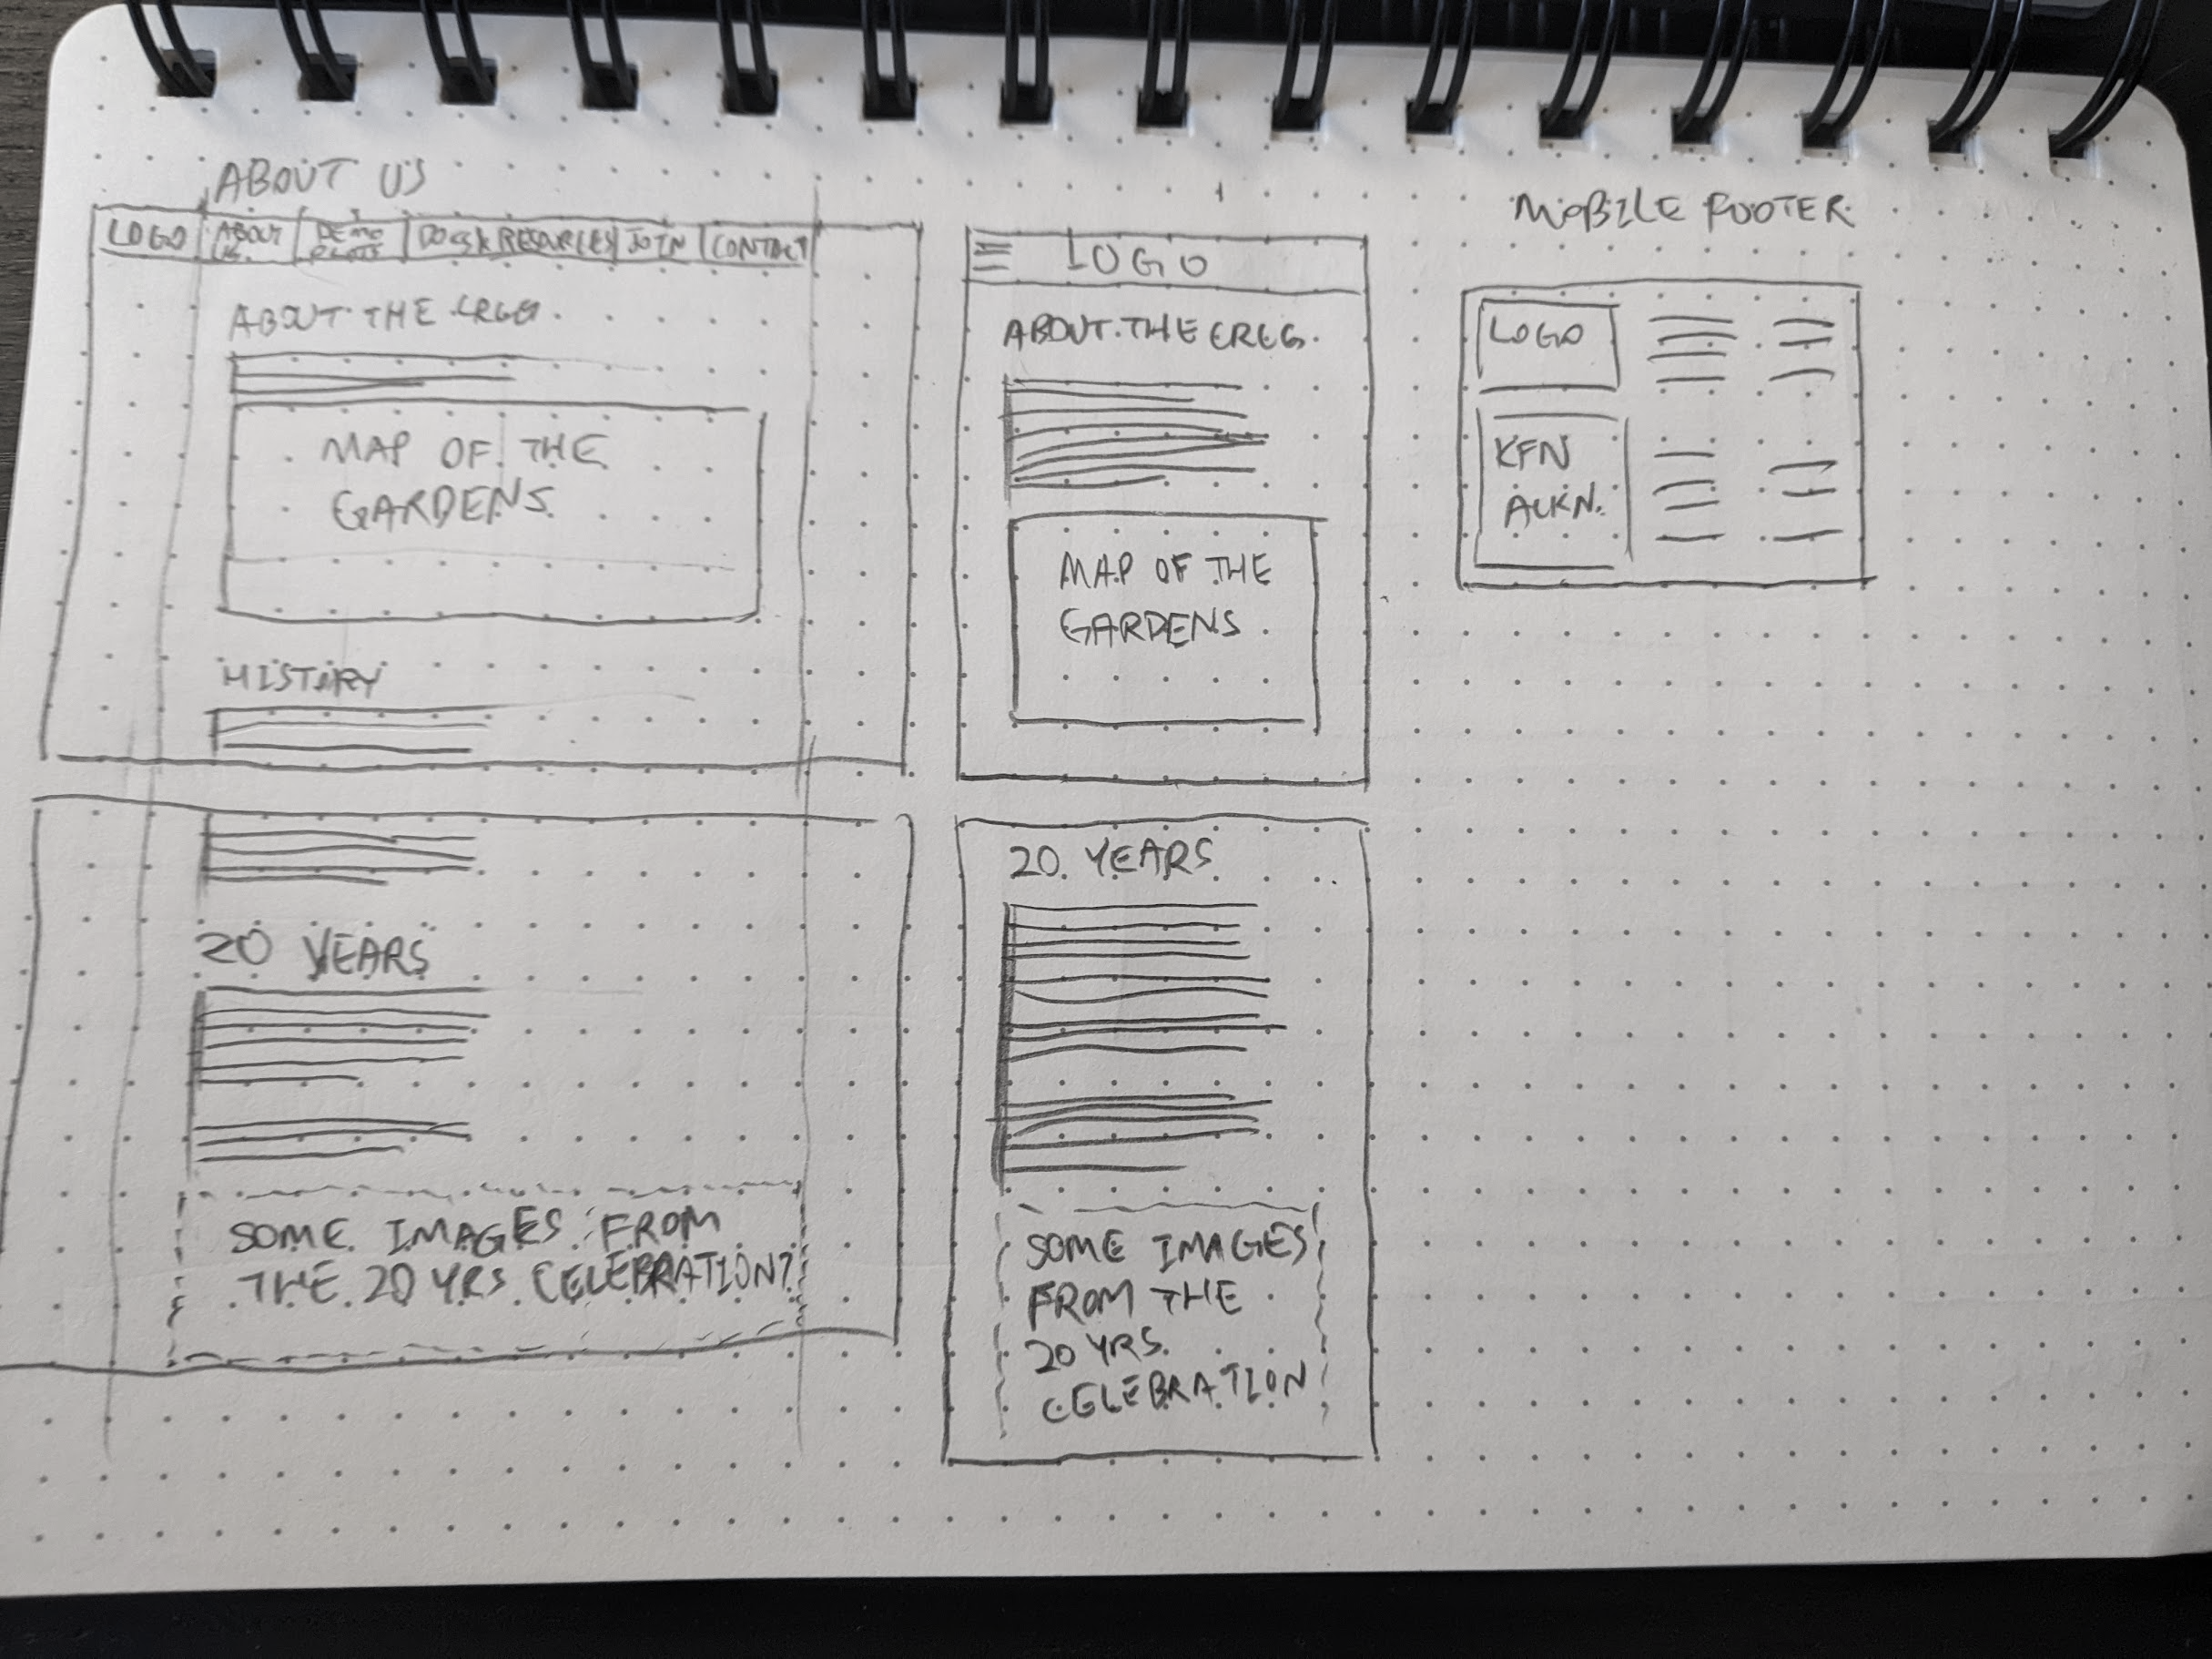 ABOUT US
LOGO
ABOUT
US.
DEMO
PLOTS
DOCS & RESOURCES
JOIN
CONTACT
ABOUT THE
MAP OF THE
GARDENS
HISTORY
20 YEARS
SOME IMAGES FROM
THE 20 YRS CELEBRATION?
LOGO
ABOUT THE
MAP OF THE
GARDENS
20 YEARS
SOME IMAGES
FROM THE
20 YRS
CELEBRATION
MOBILE FOOTER
LOGO
KFN
ACKN.